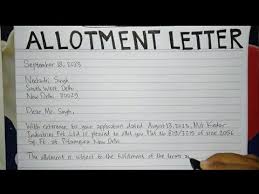 ALLOTMENT LETTER
September 18, 2023
Singh
South West Delhi
New Delhi
Dear Mr. Singh,
With reference to your application dated August 13, 2023, M/s
Industries Pvt Ltd is pleased to allot you Plot No of size
Sq. Ft at New Delhi
The allotment is subject to the fulfillment of the terms